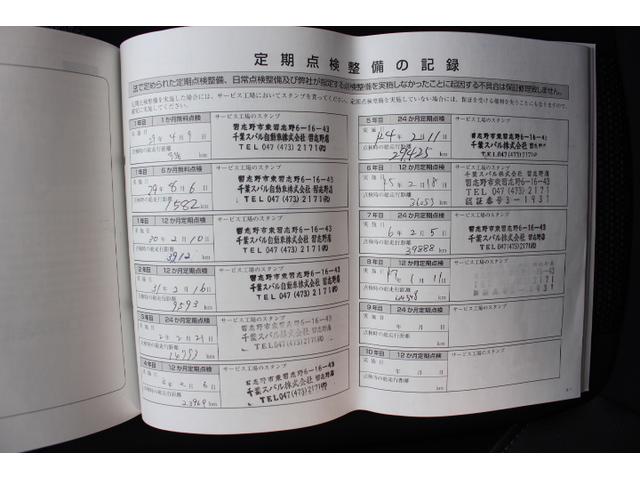 定期点検整備の記録
法で定められた定期点検整備、日常点検整備及び弊社が指定する点検整備を実施しなかったことに起因する不具合は保証修理致しません。
定期点検整備を実施した場合には、サービス工場においてスタンプを貰ってください。定期点検整備を実施していない場合には、保証を受ける権利を失うこともなりますので、
確実に実施してください。
1年目 1か月無料点検
サービス工場のスタンプ
実施日
29年4月9日
点検時の総走行距離
km
習志野市東習志野6-16-43
千葉スバル自動車株式会社 習志野店
TEL 047 (473) 2171㈹
1年目 6か月無料点検
サービス工場のスタンプ
実施日
29年8月6日
点検時の総走行距離
1582 km
習志野市東習志野6-16-43
千葉スバル自動車株式会社 習志野店
TEL 047 (473) 2171㈹
1年目 12か月定期点検
サービス工場のスタンプ
実施日
30年2月10日
点検時の総走行距離
3912 km
習志野市東習志野6-16-43
千葉スバル自動車株式会社 習志野店
TEL 047 (473) 2171㈹
2年目 12か月定期点検
サービス工場のスタンプ
実施日
31年2月16日
点検時の総走行距離
9593 km
習志野市東習志野6-16-43
千葉スバル自動車株式会社 習志野店
TEL 047 (473) 2171㈹
3年目 24か月定期点検
サービス工場のスタンプ
実施日
2年2月21日
点検時の総走行距離
km
習志野市東習志野6-16-43
千葉スバル株式会社 習志野店
TEL 047 (473) 2171㈹
4年目 12か月定期点検
サービス工場のスタンプ
実施日
年2月6日
点検時の総走行距離
23969 km
習志野市東習志野6-16-43
千葉スバル株式会社 習志野店
TEL 047 (473) 2171㈹
5年目 24か月定期点検
サービス工場のスタンプ
実施日
R4年2月11日
点検時の総走行距離
29425 km
習志野市東習志野6-16-43
千葉スバル株式会社 習志野店
TEL 047 (473) 2171㈹
6年目 12か月定期点検
サービス工場のスタンプ
実施日
点検時の総走行距離
km
習志野市東習志野6-16-43
千葉スバル株式会社 習志野店
認証番号3-1931
7年目 24か月定期点検
サービス工場のスタンプ
実施日
6年2月5日
点検時の総走行距離
39888 km
習志野市東習志野6-16-43
千葉スバル株式会社 習志野店
TEL 047 (473) 2171㈹
8年目 12か月定期点検
サービス工場のスタンプ
実施日
点検時の総走行距離
km
9年目 24か月定期点検
サービス工場のスタンプ
実施日
年 月 日
点検時の総走行距離
km
10年目 12か月定期点検
サービス工場のスタンプ
実施日
年 月 日
点検時の総走行距離
km